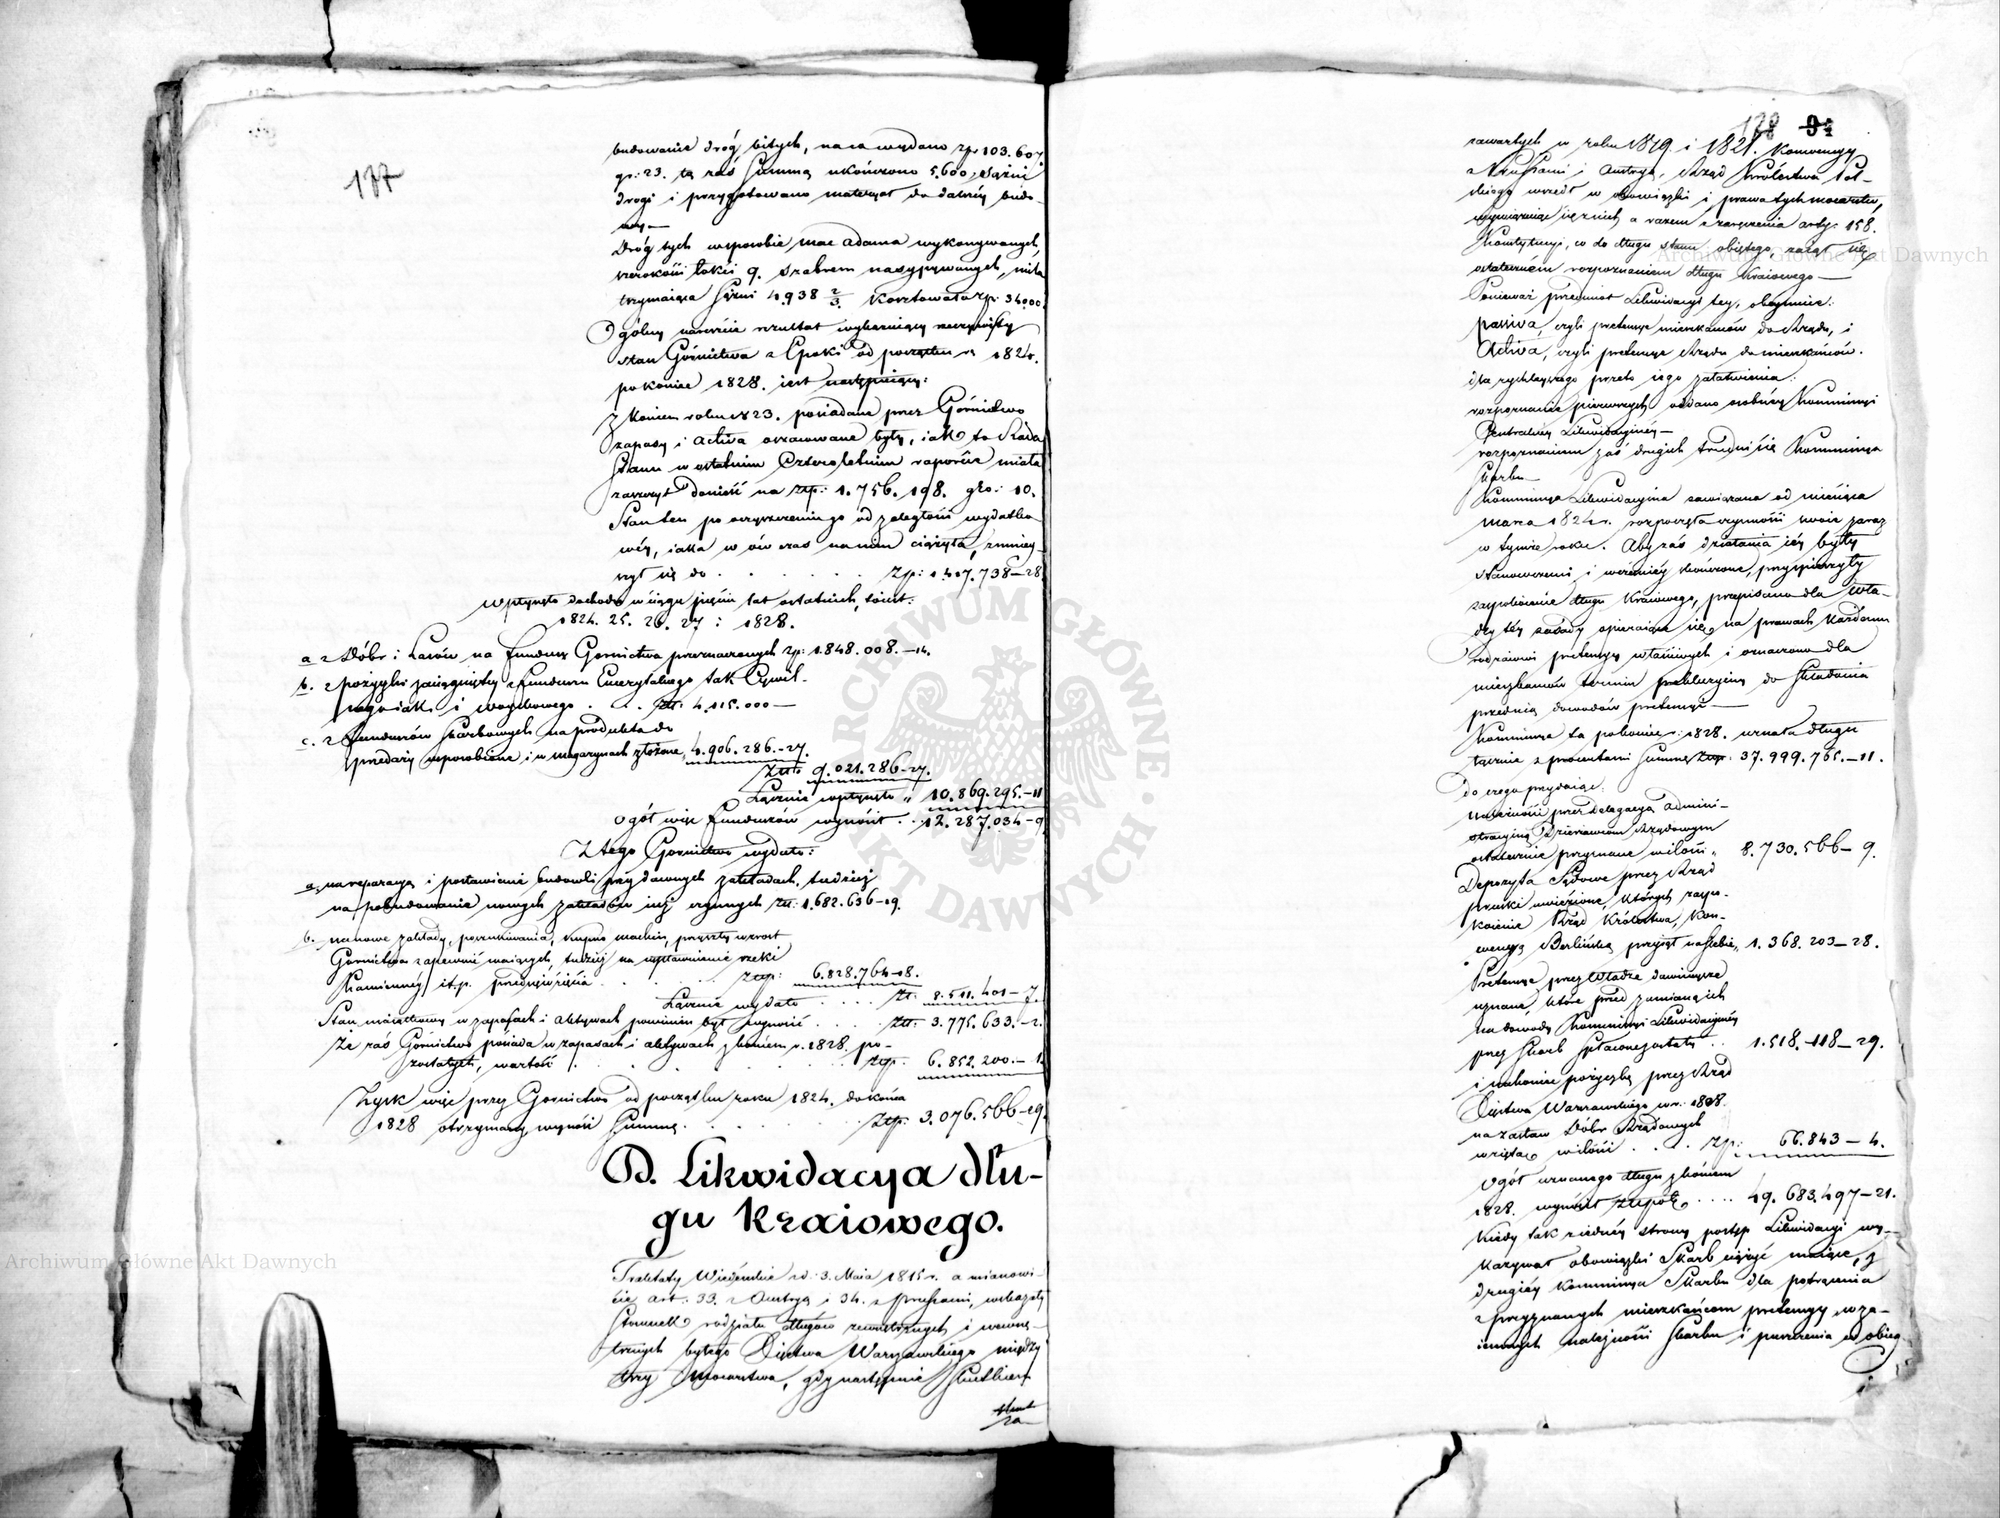 137
budowanie dróg bitych, na co wydano zp 103.607.
gr: 23. tę zaś Summą ukończono 5.600, Sążni
drogi i przygotowano materyał do dalszéy budo-
wy.—
Dróg tych w sposobie mac adama wykonywanych,
szerokości łokci 9. szabrem nasypywanych, mila
trzymaiąca Sążni 4938 2/3 kosztowała zp: 34000.
Ogólny nareszcie rezultat wykazuiący rzeczywisty
stan Górnictwa z Epoki od początku r. 1824.
po koniec 1828. iest następuiący:
Z końcem roku 1823. posiadane przez Górnictwo
zapasy i activa oszacowane były, iak to Rada
Stanu w ostatnim Czteroletnim raporcie miała
zaszczyt donieść na złp: 1.756.198. gro: 10.
Stan ten po oczyszczeniu go od zaległości wydatko-
wéy, iaka w ów czas na nim ciążyła, zmniey-
szył się do . . . . . . Zlp: 1.417.738—28
Wpłynęło dochodu w ciągu pięciu lat ostatnich, to iest:
1824. 25. 26. 27 i 1828.
a z Dóbr i Lasów na fundusz Gornictwa przeznaczonych zp: 1.848.008.—14.
b. z pożyczki zaciągniętéy z funduszu Emerytalnego tak Cywil-
nego iak i woyskowego . . . Złt: 4.115.000—
c. z funduszów Skarbowych na produkta do
przedaży usposobione i w magazynach złożone, 4.906.286.—27.
Złt: 9.021.286—27.
Łącznie wpłynęło „ 10.869.295.—11
Ogół więc funduszów wynosił . . 12.287.034—9
Z tego Gornictwo wydało:
a. na reparacyą i postawienie budowli przy dawnych zakładach, tudzież
na pobudowanie nowych zakładów iuż czynnych złt: 1.682.636—19.
b. na nowe zakłady, poszukiwania, kupno machin, przyszły wzrost
Gornictwa zapewnić maiących, tudzież na uspławnienie rzeki
Kamiennéy it.p. przedsięwzięcia . . . . Złp: 6.828.764—18.
Łącznie wydało . . . . Zł: 8.511.401—7.
Stan maiątkowy w zapasach i aktywach powinien był wynosić . . . . złt: 3.775.633.—2.
Że zaś Górnictwo posiada w zapasach i aktywach z końcem r. 1828. po-
zostałych, wartość . . . . . złp: 6.852.200.—1
Zysk więc przez Gornictwo od początku roku 1824. do końca
1828 otrzymany, wynosi Summę . . . . Złp: 3.076.566—29.
D. Likwidacya dłu-
gu kraiowego.
Traktaty Wiedeńskie z d: 3. Maia 1815 r. a mianowi-
cie art: 33. z Austryą i 34. z Prussami, wskazały
Stosunek rozdziału długów zewnętrznych i wewnę-
trznych byłego Xięstwa Warszawskiego między
trzy Mocarstwa, gdy następnie Skutkiem
128 94
zawartych w roku 1819. i 1821. Konwencyy
z Prussami i Austryą, Rząd Królestwa Pol-
skiego wszedł w obowiązki i prawa tych mocarstw,
wywiązuiąc się z nich, a razem z zaręczenia arty: 158.
Konstytucyi, co do długu stanu obiętego, zaiął się
ostateczném rozpoznaniem długu Kraiowego—
Ponieważ przedmiot Likwidacyi tey, obeymuie:
passiva, czyli pretensye mieszkańców do Rządu, i
Activa, czyli pretensye Rządu do mieszkańców.
dla rychleyszego przeto iego załatwienia:
rozpoznanie pierwszych oddano osobnéy Kommissyi
Centralnéy Likwidacyinéy—
rozpoznaniem zaś drugich trudni się Kommissya
Skarbu—
Kommissya Likwidacyina zawiązana od miesiąca
marca 1824 r. rozpoczęła czynności swoie zaraz
w tymże roku. Aby zaś działania iéy były
stanowczemi i wcześniéy skończone, przyspieszyły
zaspokoienie długu Kraiowego, przepisano dla Wła-
dzy téy zasady opieraiące się na prawach każdemu
rodzaiowi pretensyy właściwych i oznaczono dla
mieszkańców termin prekluzyiny do składania
przed nią dowodów pretensyi—
Kommissya ta po koniec r: 1828. uznała długu
łącznie z procentami Summę złp: 37.999.765.—11.
do czego przydaiąc:
należności przez Delegacyą admini-
stracyiną Dzierżawcom Rządowym
ostatecznie przyznane w ilości „ 8.730.566—9.
Depozyta Sądowe przez Rząd
pruski uwięzione, których zaspo-
koienie Rząd Królestwa, kon-
wencyą Berlińską przyiął na siebie, 1.368.203—28.
Pretensye przez Władze dawnieysze
uznane, które przed zamianą ich
na dowody Kommissyi Likwidacyinéy
przez Skarb spłacone zostały . . 1.518.118—29.
i nakoniec pożyczkę przez Rząd
Xięstwa Warszawskiego w r. 1808.
na zastaw Dóbr Rządowych
wziętą w ilości . . . . Zp: 66.843—4.
Ogół uznanego długu z końcem
1828. wynosił złpol: . . . . 49.683.497—21.
Kiedy tak z iednéy strony postęp Likwidacyi wy-
kazywał obowiązki Skarb ciążyć maiące, z
drugiéy Kommissya Skarbu dla potrącenia
z przyznanych mieszkańcom pretensyy wza-
iemnych należności Skarbu i puszczenia w obieg
ARCHIWUM GŁÓWNE AKT DAWNYCH
Archiwum Główne Akt Dawnych
Archiwum Główne Akt Dawnych